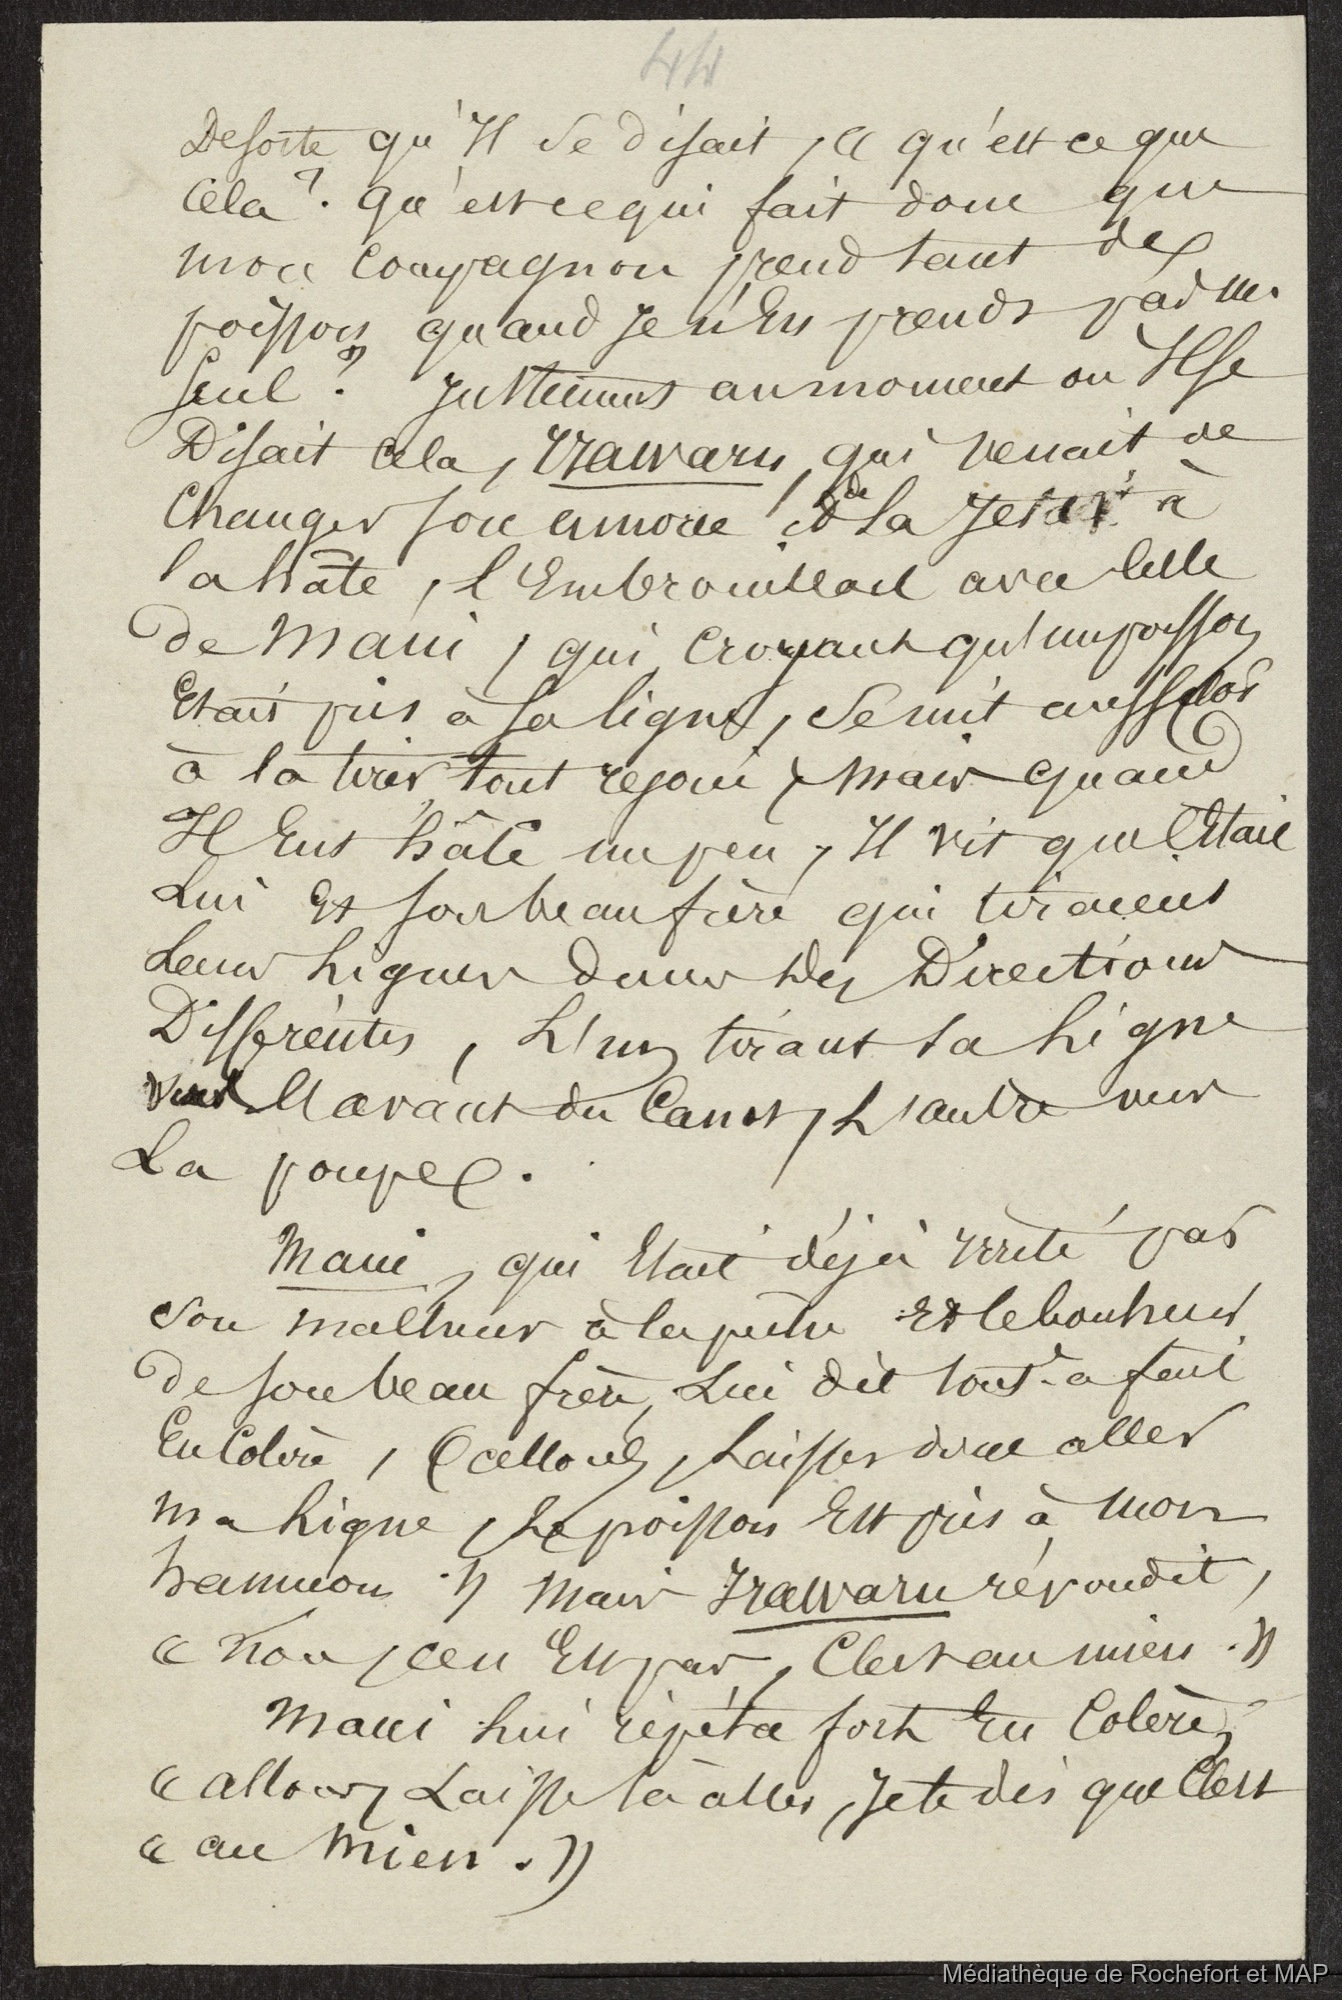 44
Desorte qu'Il se disait, « qu'est ce que
Cela ?. Qu'est ce qui fait donc que
mon Compagnon prend tant de
poissons quand Je n'En prends pas un
seul ? » Justement au moment ou Il se
Disait cela, Irawaru, qui venait de
Changer son amorce et de la Jeter à
la hâte, l'Embrouillait avec Celle
de Maui, qui, Croyant qu'un poisson
Etait pris à sa ligne, se mit aussitot
à la tirer tout rejoui, mais quand
Il Eut hâlé un peu, Il vit que C'Etait
Lui Et son beau frère qui tiraient
Leurs Lignes dans des Directions
Differéntes, L'un tirant sa Ligne
vers l'avant du Canot, L'autre vers
La poupe.
Maui, qui Etait déjà irrité par
son malheur à la pêche Et le bonheur
de son beau frère, Lui dit tout à fait
En Colère, « allons, Laisses donc aller
ma Ligne, Le poisson Est pris à mon
hameçon. » Mais Irawaru répondit,
« Non, Ce n'Est pas, C'est au mien. »
Maui Lui répéta fort En Colère,
« allons, Laisse la aller, Je te dis que C'est
« au Mien. »
Médiathèque de Rochefort et MAP